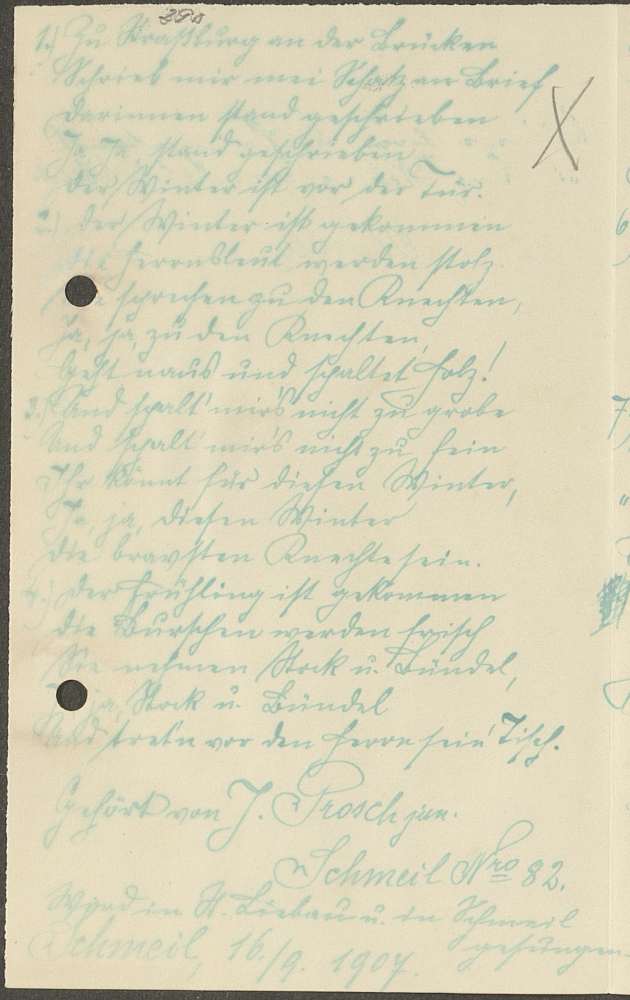 1.) Zu Straßburg an der Brücken
Schrieb mir mei Schatz an Brief
darinnen stand geschrieben
Ja, Ja, stand geschrieben
der Winter ist vor der Tür.
2.) Der Winter ist gekommen
die Herrnsleut werden stolz
sprechen zu den Knechten,
Ja, ja, zu den Knechten,
Geht naus und spaltet Holz!
3.) Und spalt' mir's nicht zu grobe
Und spalt' mir's nicht zu fein
Ihr könnt für diesen Winter,
Ja, ja, diesen Winter
die bravsten Knechte sein.
4.) Der Frühling ist gekommen
die Burschen werden frisch
Sie nehmen Stock u. Bündel,
ja, Stock u. Bündel
Und tret'n vor den Herrn sein' Tisch.
Gehört von J. Prosch jun.
Schmeil Nro 82.
Wird in St. Liebau u. in Schmeil
gesungen.
Schmeil, 16./9. 1907.